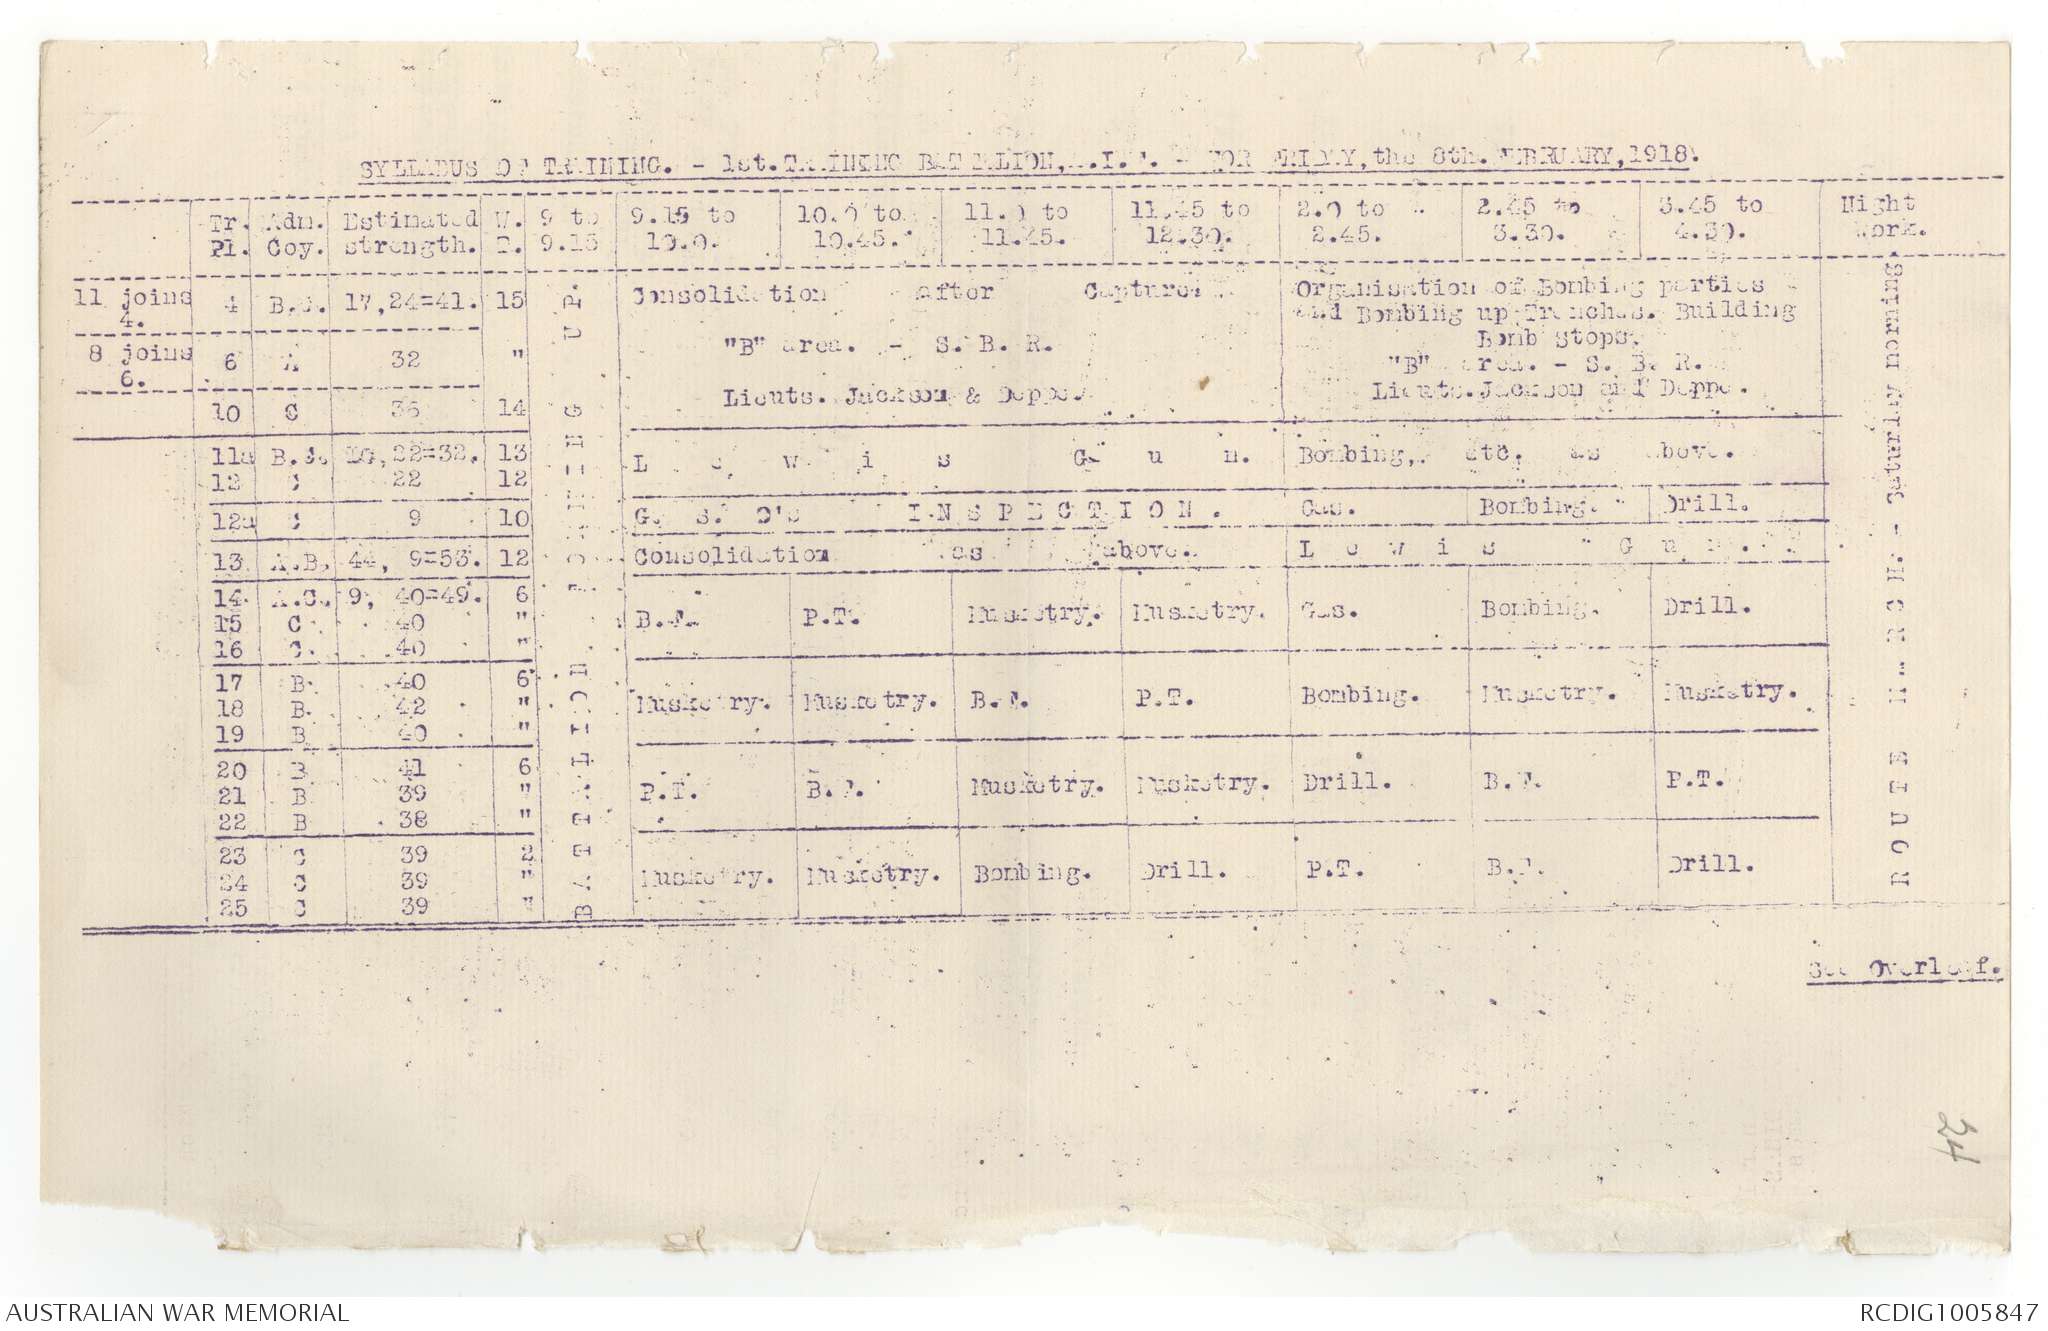 SYLLABUS OF TRAINING. - 1st. TRAINING BATTALION, A.I.F. - FOR FRIDAY, the 8th. FEBRUARY, 1918.
Tr. Adm. Estimated W. 9 to 9.15 to 10.0 to 11.0 to 11.45 to 2.0 to 2.45 to 3.45 to Night
Pl. Coy. strength. T. 9.15 10.0. 10.45. 11.45. 12.30. 2.45. 3.30. 4.30. Work.
11 joins 4. 4 B.C. 17,24=41. 15 Consolidation after Capture. Organisation of Bombing parties
and Bombing up Trenches. Building
Bomb Stops.
8 joins 6. 6 A 32 " "B" area. - S. B. R. "B" area. - S. B. R.
10 C 35 14 Lieuts. Jackson & Deppe. Lieuts. Jackson and Deppe.
11a B.C. 10,22=32. 13 L e w i s G u n. Bombing, etc. as above.
12 C 22 12
12a C 9 10 G. S. O's I N S P E C T I O N. Gas. Bombing. Drill.
13 A.B. 44, 9=53. 12 Consolidation as above. L e w i s G u n.
14 A.C. 9, 40=49. 6
15 C 40 " B.F. P.T. Musketry. Musketry. Gas. Bombing. Drill.
16 C. 40 "
17 B 40 6
18 B. 42 " Musketry. Musketry. B.F. P.T. Bombing. Musketry. Musketry.
19 B 40 "
20 B 41 6
21 B 39 " P.T. B.F. Musketry. Musketry. Drill. B.F. P.T.
22 B 38 "
23 C 39 2
24 C 39 " Musketry. Musketry. Bombing. Drill. P.T. B.F. Drill.
25 C 39 "
BATTALION FORMING UP.
ROUTE MARCH. - Saturday morning.
See Overleaf.
24
AUSTRALIAN WAR MEMORIAL
RCDIG1005847